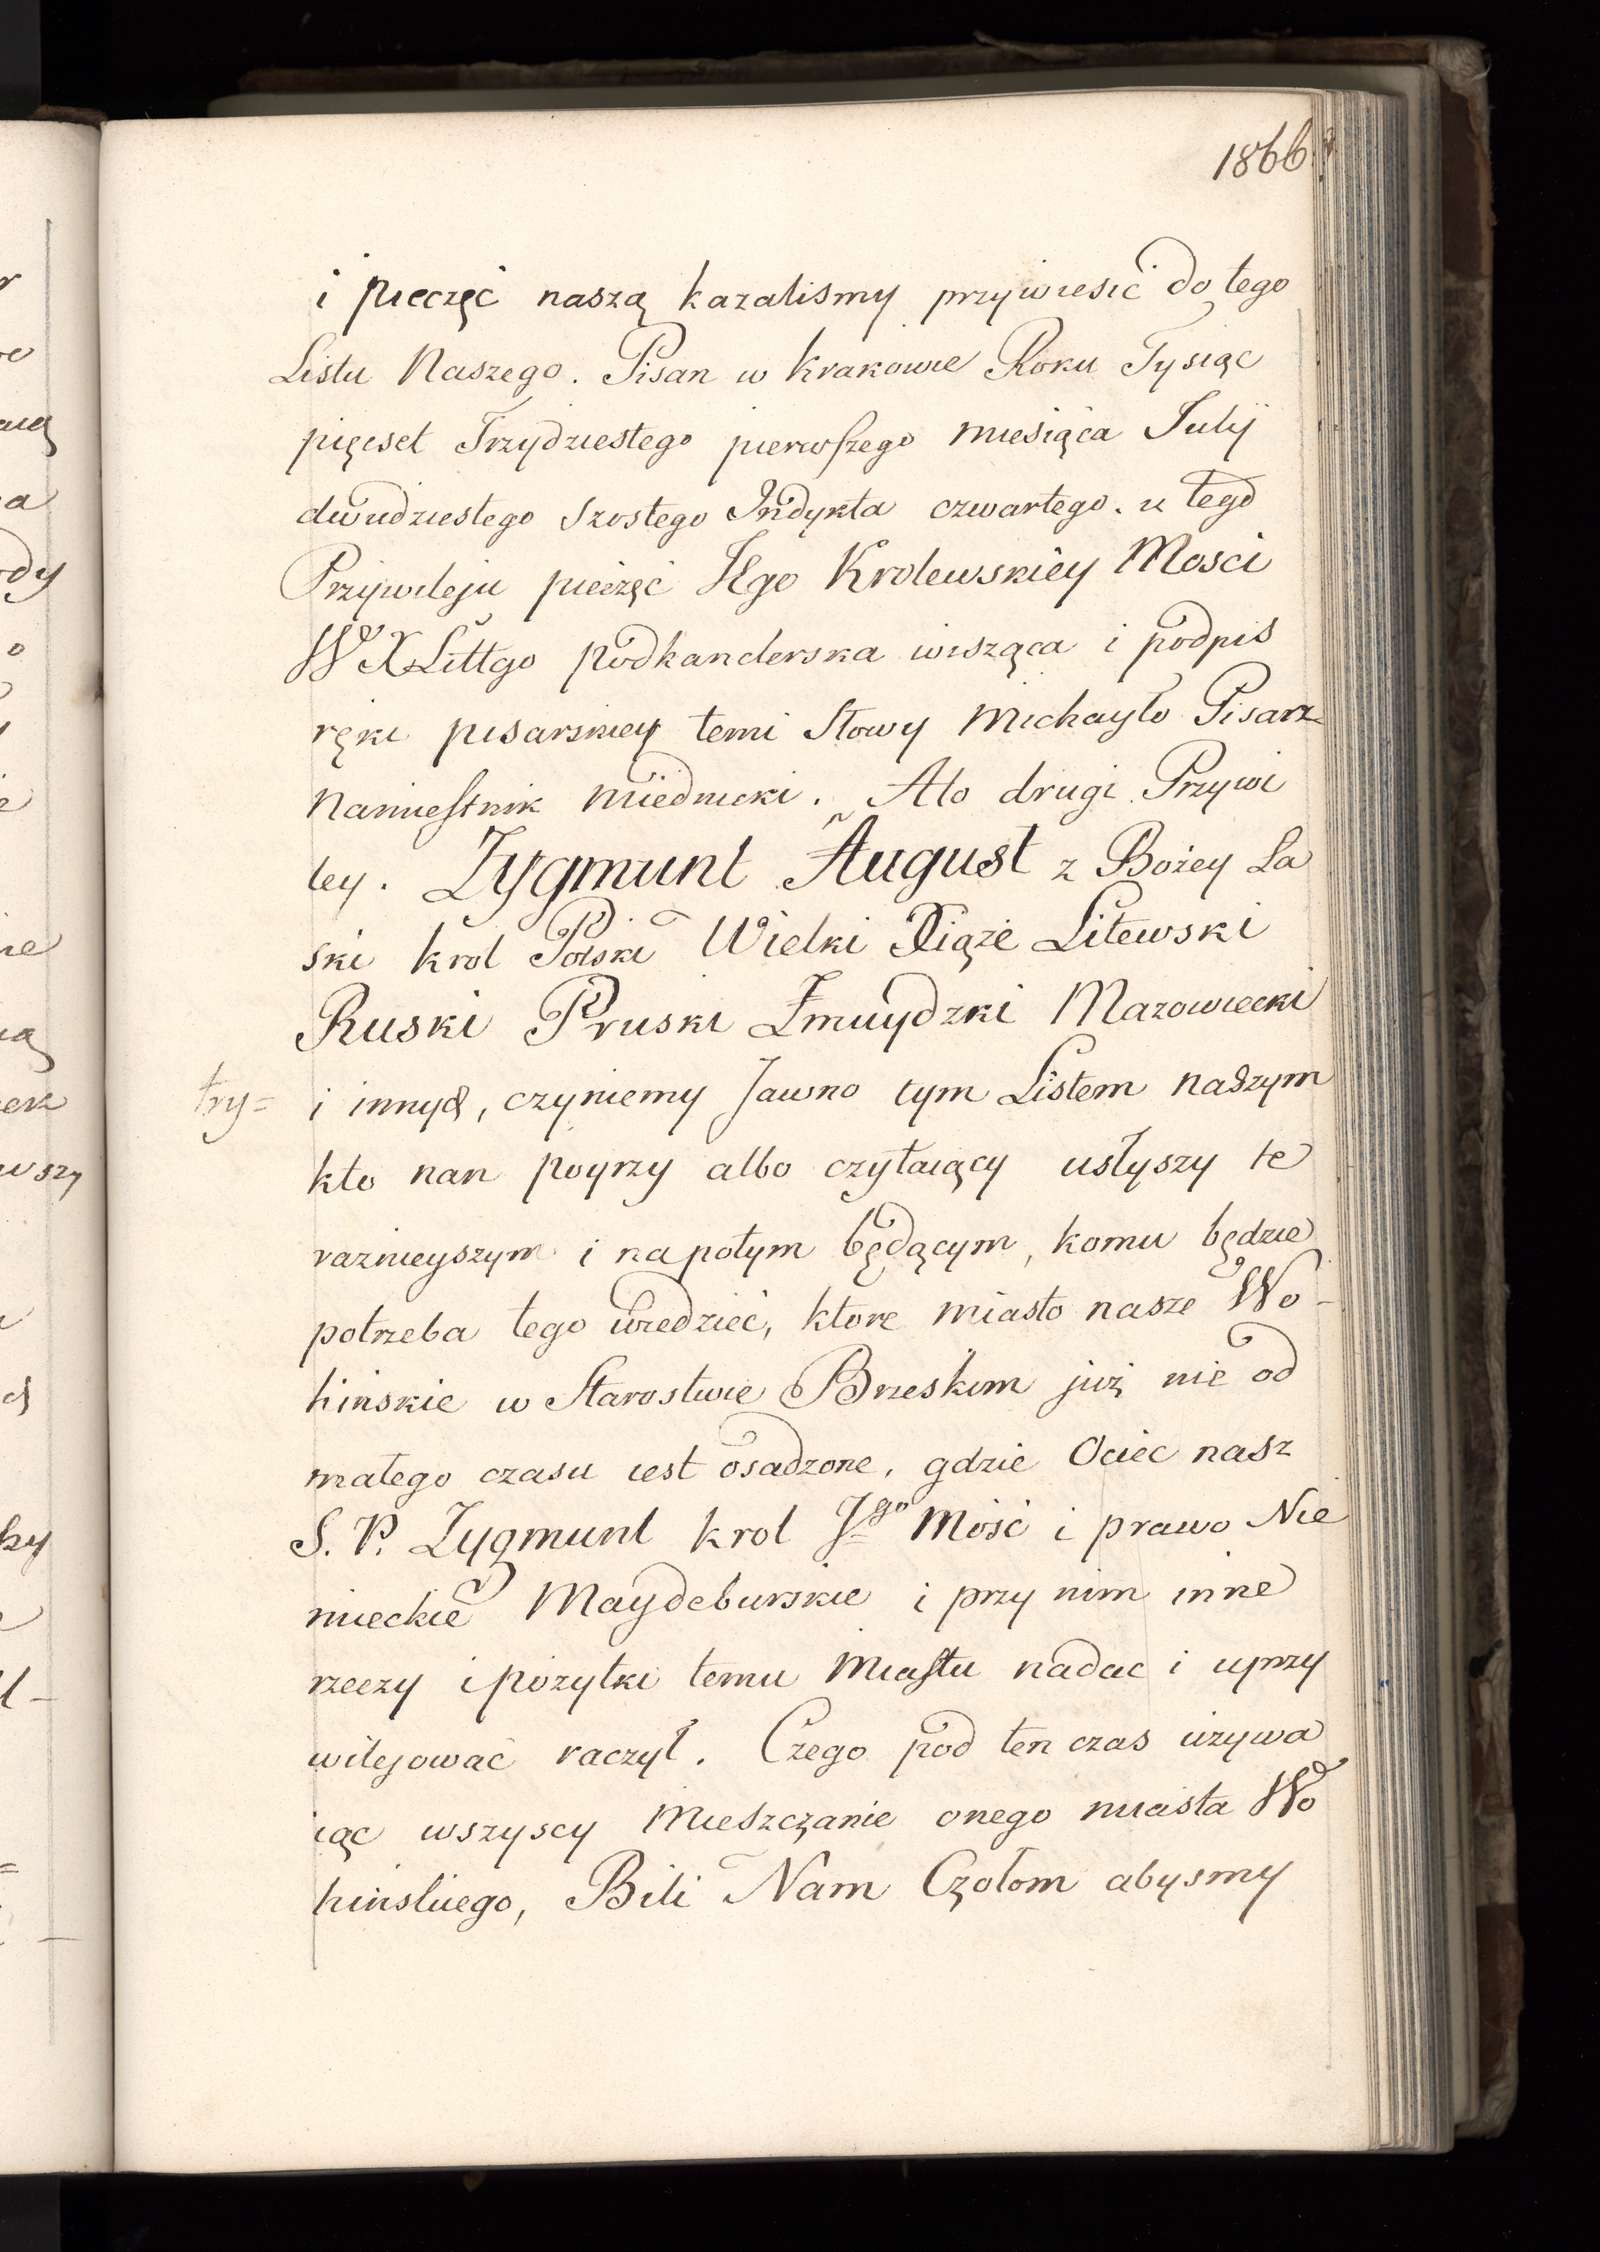 1866
i pieczęć naszą kazalismy przywiesić do tego
Listu Naszego. Pisan w Krakowie Roku Tysiąc
pięcset Trzydziestego pierwszego miesiąca Julÿ
dwudziestego szostego Indykta czwartego. u tego
Przywileju pieczęć JEgo Krolewskiey Mosci
W XLittgo podkanclerska wisząca i podpis
ręki pisarskiey temi Słowy Michayło Pisarz
Namiestnik Miednicki. Ato drugi Przywi
ley. Zygmunt August z Bożey La
ski Krol Polski Wielki Xiąże Litewski
Ruski Pruski Żmuydzki Mazowiecki
try= i innych, czyniemy Jawno tym Listem naszym
kto nan poyrzy albo czytaiący usłyszy te
raznieyszym i napotym będącym, komu będzie
potrzeba tego wiedzieć, ktore miasto nasze Wo-
hińskie w Starostwie Brzeskim już nie od
małego czasu iest osadzone, gdzie Ociec nasz
S. P. Zygmunt Krol Jgo Mość i prawo Nie
mieckie Maydeburskie i przy nim inne
rzeczy i pożytki temu Miastu nadac i uprzy
wilejować raczył. Czego pod ten czas używa
iąc wszyscy Mieszczanie onego miasta Wo
hińskiego, Bili Nam Czołom abysmy